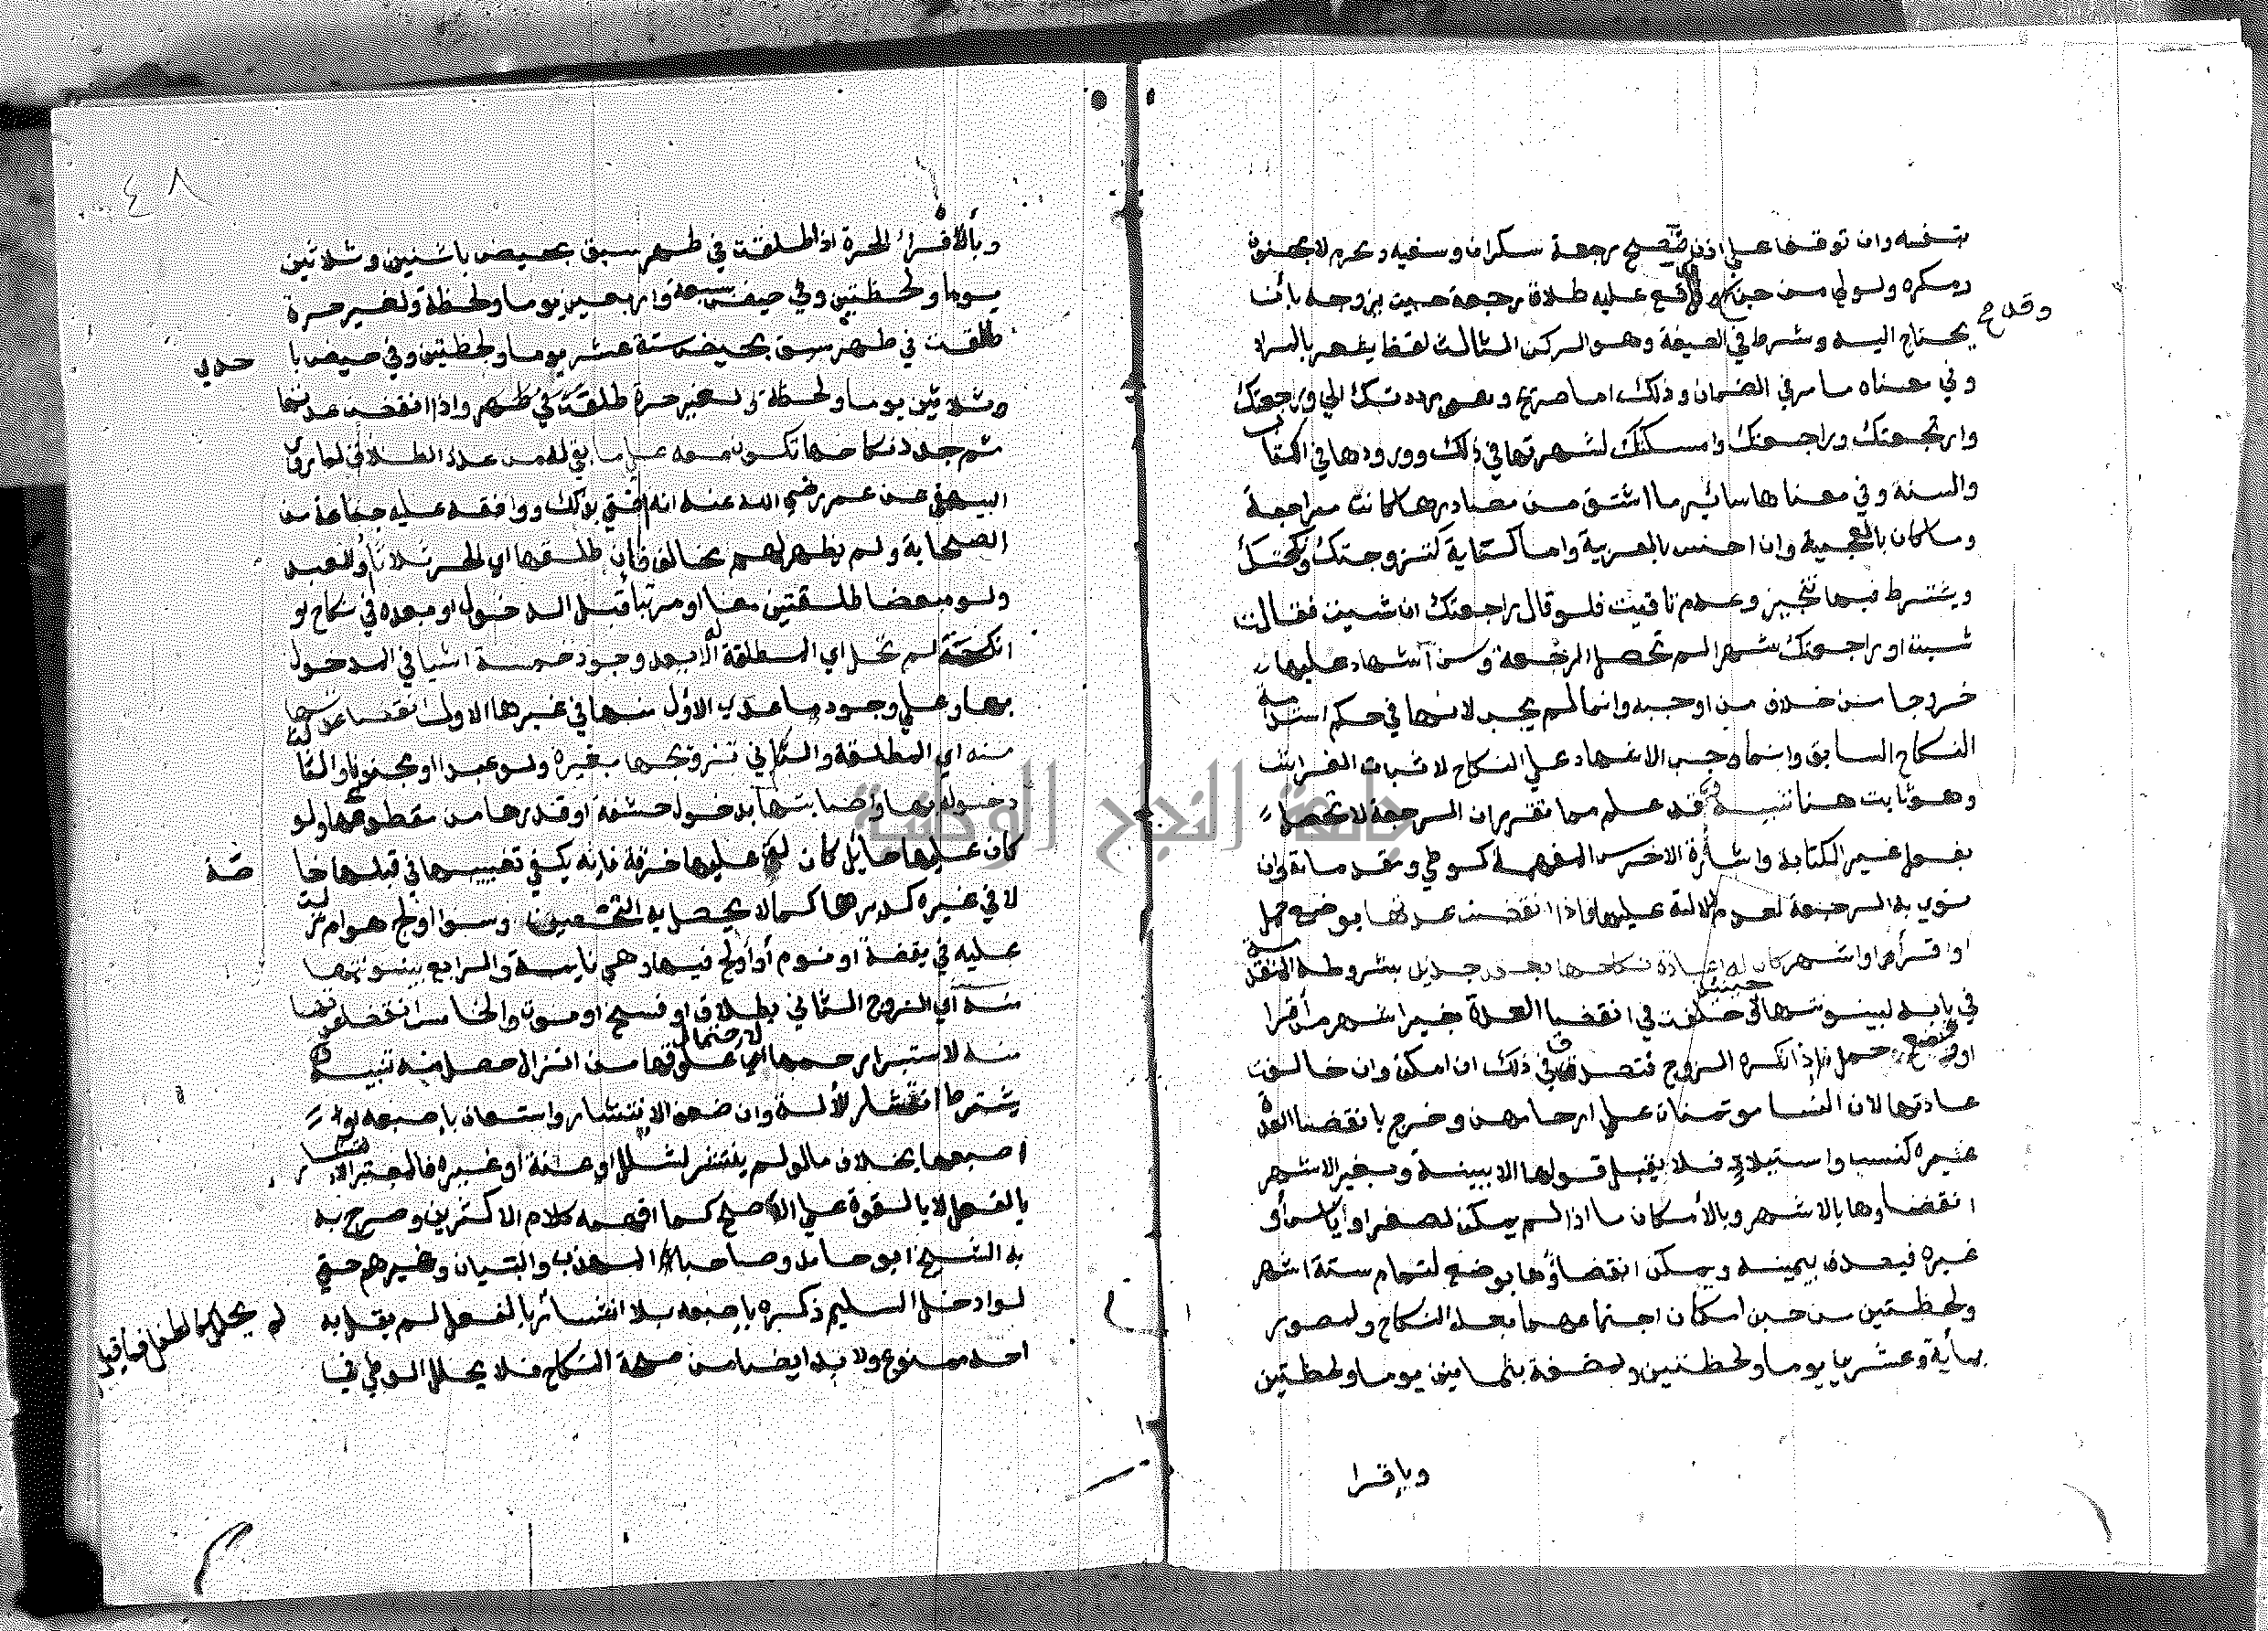 بنفسه وان توقف على اذن فتصح رجعة سكران وسفيه ومحرم لا مجنون
ومكره ولولي من جن وقد وقع عليه طلاق رجعة حيث يزوجه بأن
وقد ح
يحتاج اليه وشرط في الصيغة وهو الركن الثالث لفظ يشعر بالمراد
وفي معناه ما مر في الضمان وذلك اما صريح وهو رددتك الي ورجعتك
وارتجعتك وراجعتك وامسكتك لشهرتها في ذلك وورودها في الكتاب
والسنة وفي معناها سائر ما اشتق من مصادرها كانت مراجعة
وما كان بالعجمية وان احسن بالعربية واما كناية كتزوجتك ونكحتك
ويشترط فيها تنجيز وعدم تاقيت فلو قال راجعتك ان شيت فقالت
شيت او راجعتك شهرا لم تحصل الرجعة وسن اشهاد عليها
خروجا من خلاف من اوجبه وانما لم يجب لانها في حكم استدامة
النكاح السابق وانما وجب الاشهاد على النكاح لاثبات الفراش
وهو ثابت هنا تنبيه قد علم مما تقرر ان الرجعة لا تحصل
بفعل غير الكتابة واشارة الاخرس المفهمة كوطي ومقدماته وان
نوي به الرجعة لعدم دلالته عليها فاذا انقضت عدتها بوضع حمل
او اقرأ او اشهر كان له اعادة نكاحها بعقد جديد بشروطه المتقدمة
في بابه لبينونتها حينئذ فان حلفت في انقضا العدة بغير اشهر من اقرا
او وضع حمل اذا انكره الزوج فتصدق في ذلك ان امكن وان خالفت
عادتها لان النسا موتمنات على ارحامهن وخرج بانقضا العدة
غيره كنسب واستيلاد فلا يقبل قولها الا ببينة وبغير الاشهر
انقضاوها بالاشهر وبالأمكان ما اذا لم يمكن لصغر او أياس أو
غيره فيصدق بيمينه ويمكن انقضاؤها بوضع لتمام ستة اشهر
ولحظتين من حين امكان اجتماعهما بعد النكاح ولمصور
بمأية وعشرين يوما ولحظتين ولمضغة بثمانين يوما ولحظتين
وبإقرا
٤٨
وبالأقراء لحرة اذا طلقت في طهر سبق بحيض باثنين وثلاثين
يوما ولحظتين وفي حيض بسبعة واربعين يوما ولحظة ولغير حرة
طلقت في طهر سبق بحيض ستة عشر يوما ولحظتين وفي حيض با حدي
وثلاثين يوما ولحظة لغير حرة طلقت في طهر واذا انقضت عدتها
ثم جدد نكاحها تكون معه على ما بقي له من عدد الطلاق لما روي
البيهقي عن عمر رضي الله عنه انه افتي بذلك ووافقه عليه جماعة من
الصحابة ولم يظهر لهم مخالف فان طلقها اي الحر ثلاثا والعبد
ولو مبعضا طلقتين معا او مرتبا قبل الدخول او بعده في نكاح او
انكحة لم تحل اي المطلقة الا بعد وجود خمسة اشيا في المدخول
بها وعلي وجود ما عدا الأول منها في غيرها الاول انقضا عدتها
منه اي المطلقة والثاني تزويجها بغيره ولو عبدا او مجنونا والثالث
دخوله بها واصابتها بدخول حشفته او قدرها من مقطوعها ولو
كان عليها حايل كأن لف عليها خرقة فانه يكفي تغييبها في قبلها خا صة
لا في غيره كدبرها كما لا يحصل به التحصين وسوا اولج هو ام نزلت
عليه في يقظة او نوم أو أولج فيها وهي نايمة والرابع بينونتها
منه أي الزوج الثاني بطلاق او فسخ او موت والخامس انقضا عدتها
منه لاستبراء رحمها لاحتمال علوقها من انزال حصل منه تنبيه
يشترط انتشار الألة وان ضعف الانتشار واستعان بإصبعه او
اصبعها بخلاف ما لو لم ينتشر لشلل او عنة او غيره فالمعتبر الانتشار
بالفعل لا بالقوة على الأصح كما افهمه كلام الاكثرين وصرح به
به الشيخ ابو حامد وصاحبا المهذب والبيان وغيرهم حتي
لو ادخل السليم ذكره بإصبعه بلا انتشار بالفعل لم يحلل كالطفل فما قيل لم يقل به
احد ممنوع ولا بد ايضا من صحة النكاح فلا يحلل الوطي في